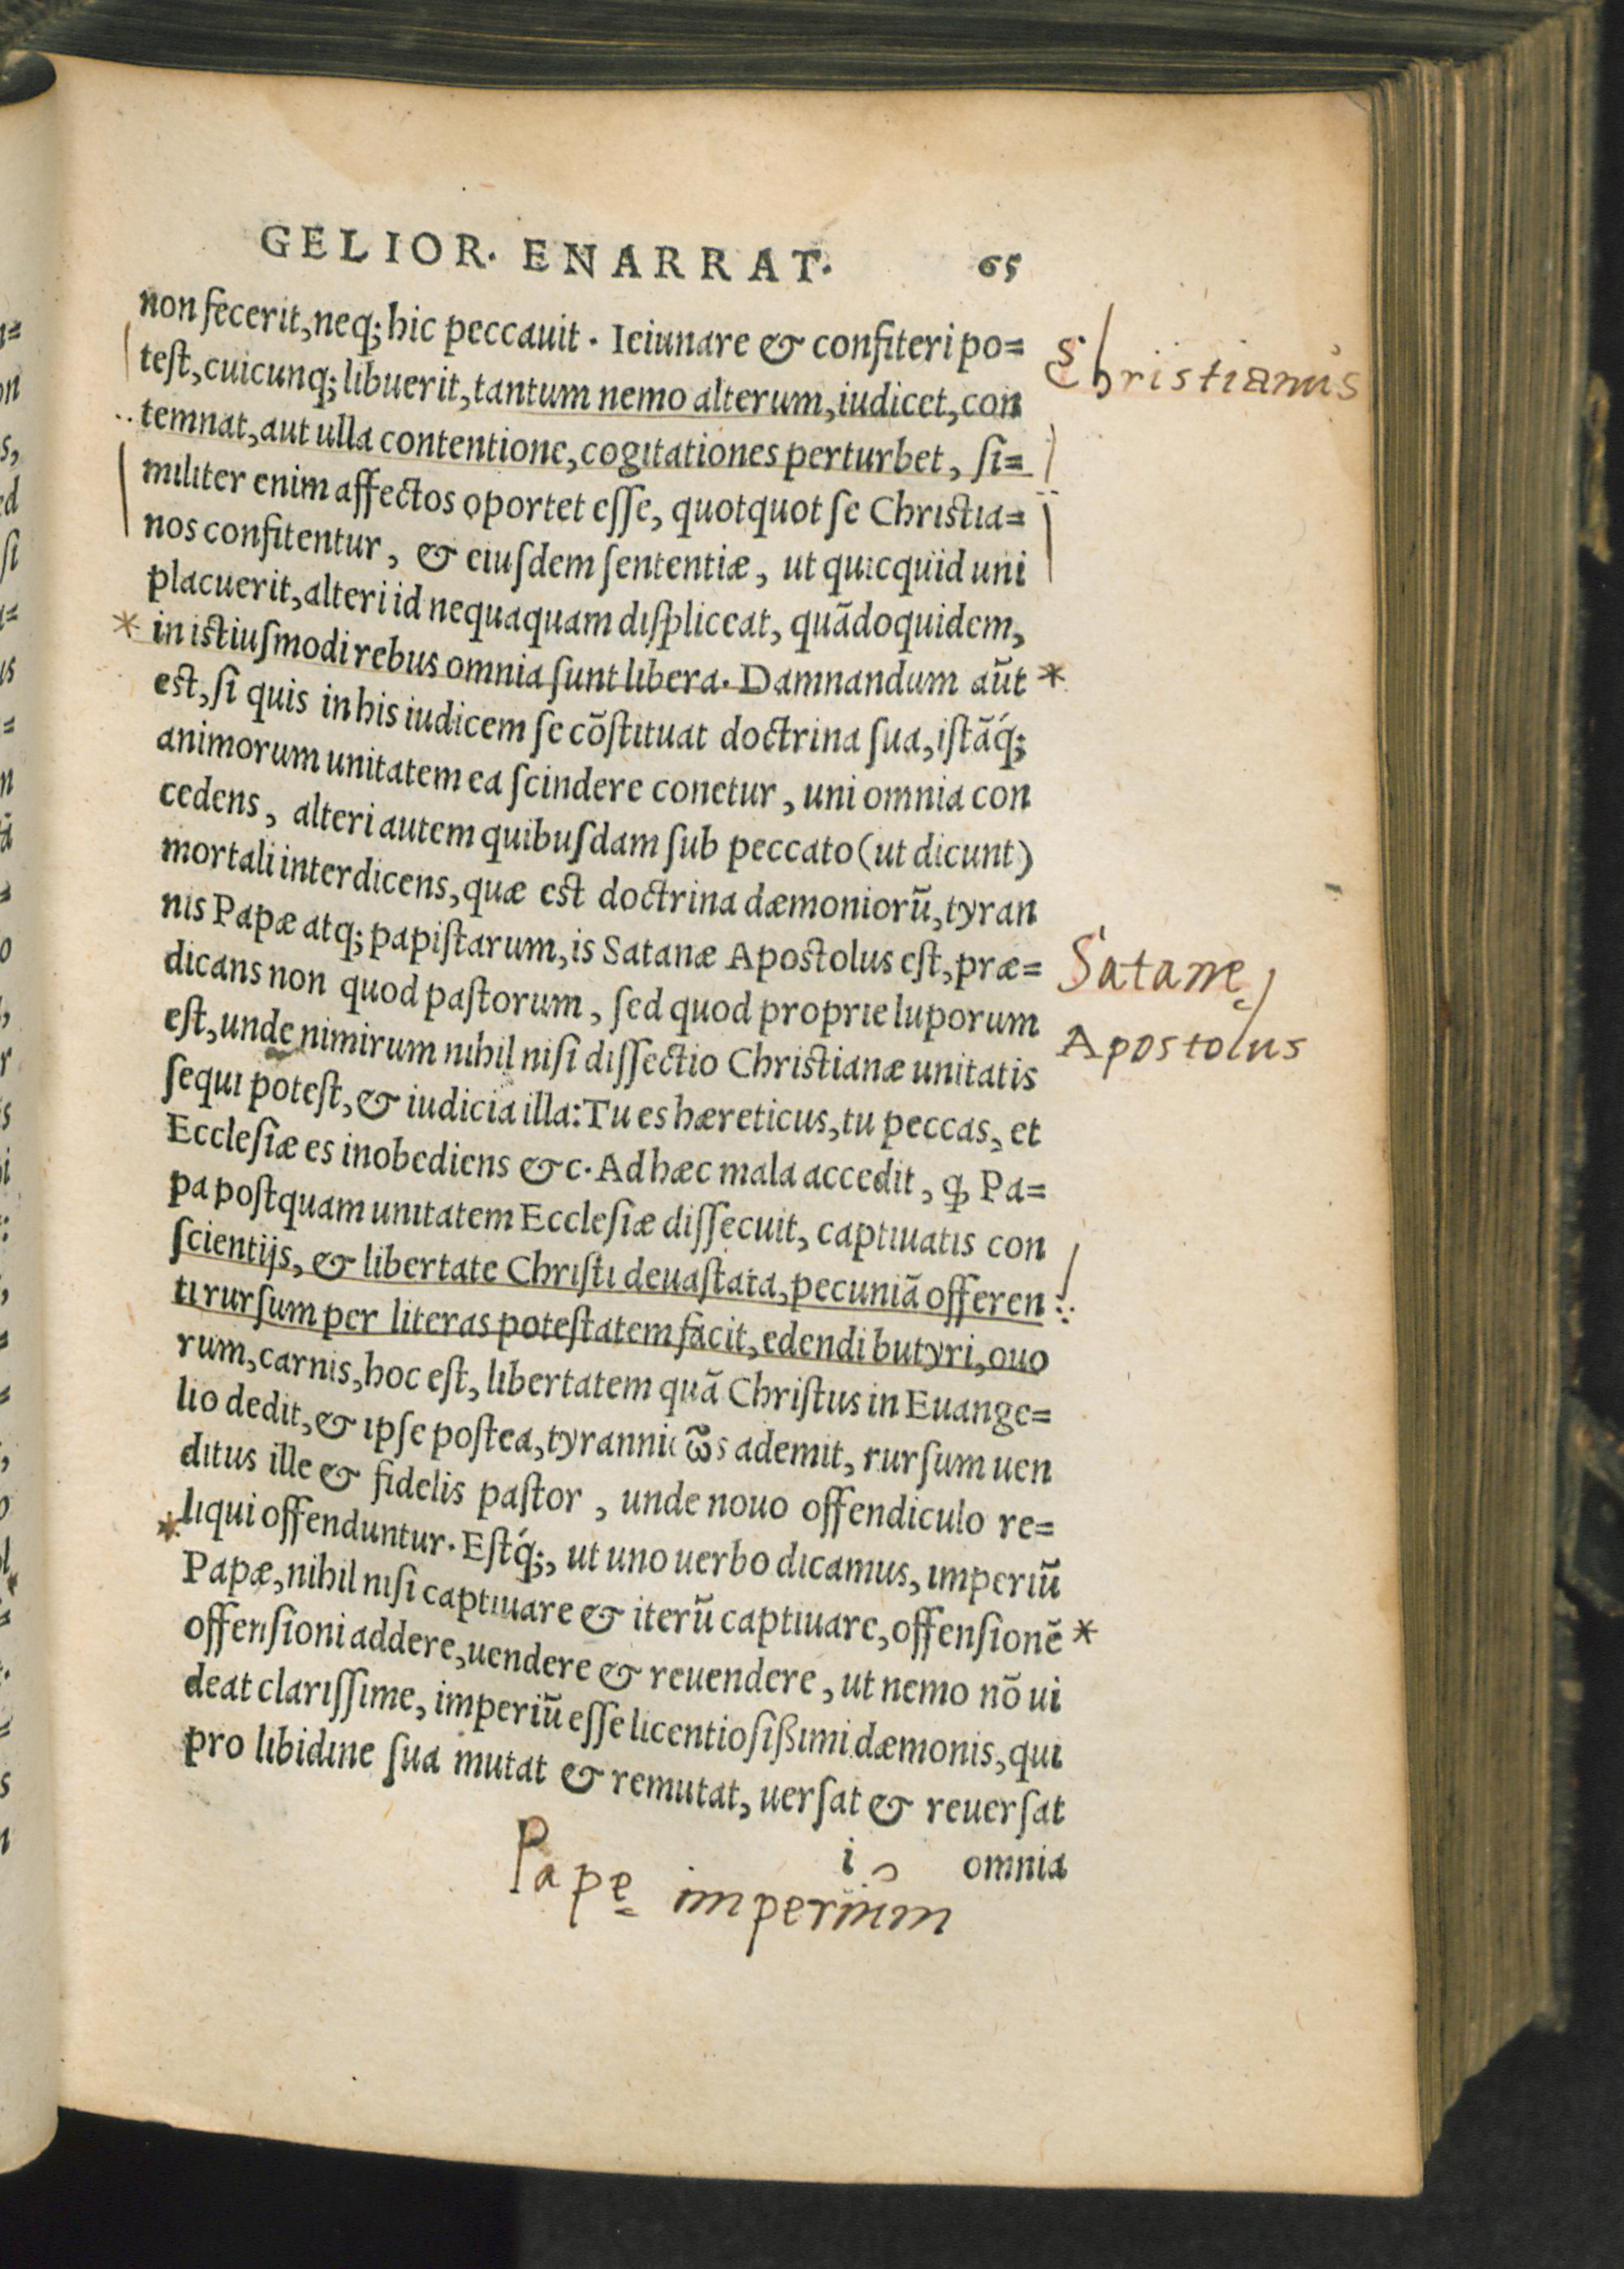 GELIOR. ENARRAT. 65
non fecerit, neq; hic peccauit. Ieiunare & confiteri po=
teſt, cuicunq; libuerit, tantum nemo alterum, iudicet, con
temnat, aut ulla contentione, cogitationes perturbet, ſi=
militer enim affectos oportet eſſe, quotquot ſe Chriſtia=
nos confitentur, & eiuſdem ſententiæ, ut quicquid uni
placuerit, alteri id nequaquam diſpliceat, quãdoquidem,
* in iſtiuſmodi rebus omnia ſunt libera. Damnandum aũt *
eſt, ſi quis in his iudicem ſe cõſtituat doctrina ſua, iſtãq́;
animorum unitatem ea ſcindere conetur, uni omnia con
cedens, alteri autem quibuſdam ſub peccato (ut dicunt)
mortali interdicens, quæ eſt doctrina dæmoniorũ, tyran
nis Papæ atq; papiſtarum, is Satanæ Apoſtolus eſt, præ=
dicans non quod paſtorum, ſed quod proprie luporum
eſt, unde nimirum nihil niſi diſſectio Chriſtianæ unitatis
ſequi poteſt, & iudicia illa: Tu es hæreticus, tu peccas, et
Eccleſiæ es inobediens &c. Ad hæc mala accedit, ꝙ Pa=
pa poſtquam unitatem Eccleſiæ diſſecuit, captiuatis con
ſcientijs, & libertate Chriſti deuaſtata, pecuniã offeren
ti rurſum per literas poteſtatem facit, edendi butyri, ouo
rum, carnis, hoc eſt, libertatem quã Chriſtus in Euange=
lio dedit, & ipſe poſtea, ademit, rurſum uen
ditus ille & fidelis paſtor, unde nouo offendiculo re=
* liqui offenduntur. Eſtq́;, ut uno uerbo dicamus, imperiũ
Papæ, nihil niſi captiuare & iterũ captiuare, offenſionẽ *
offenſioni addere, uendere & reuendere, ut nemo nõ ui
deat clariſſime, imperiũ eſſe licentioſiſſimi dæmonis, qui
pro libidine ſua mutat & remutat, uerſat & reuerſat
i omnia
Christianus
Satanę
Apostolus
Papę imperium